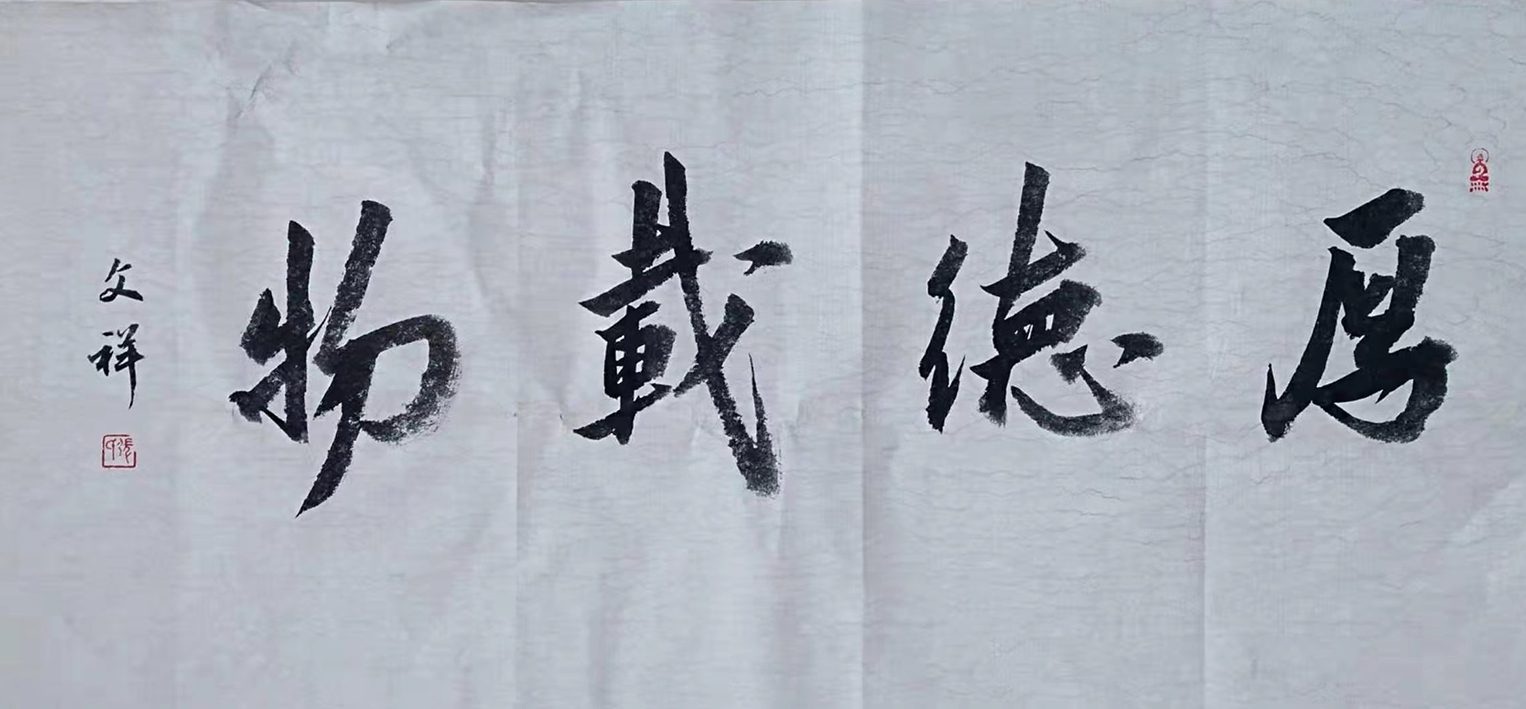 厚德載物
文祥